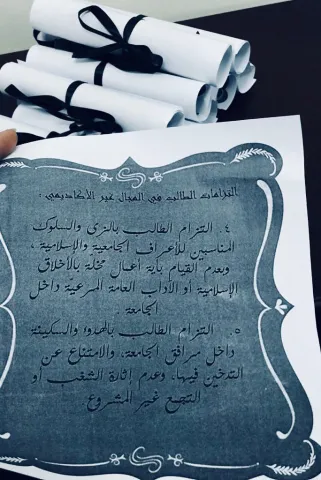 التزامات الطالب في المجال غير الأكاديمي :
٤. التزام الطالب بالزي والسلوك
المناسبين للأعراف الجامعية والإسلامية ،
وبعدم القيام بأية أعمال مخلة بالأخلاق
الإسلامية أو الآداب العامة المرعية داخل
الجامعة .
٥. التزام الطالب بالهدوء والسكينة
داخل مرافق الجامعة، والامتناع عن
التدخين فيها، وعدم إثارة الشغب أو
التجمع غير المشروع